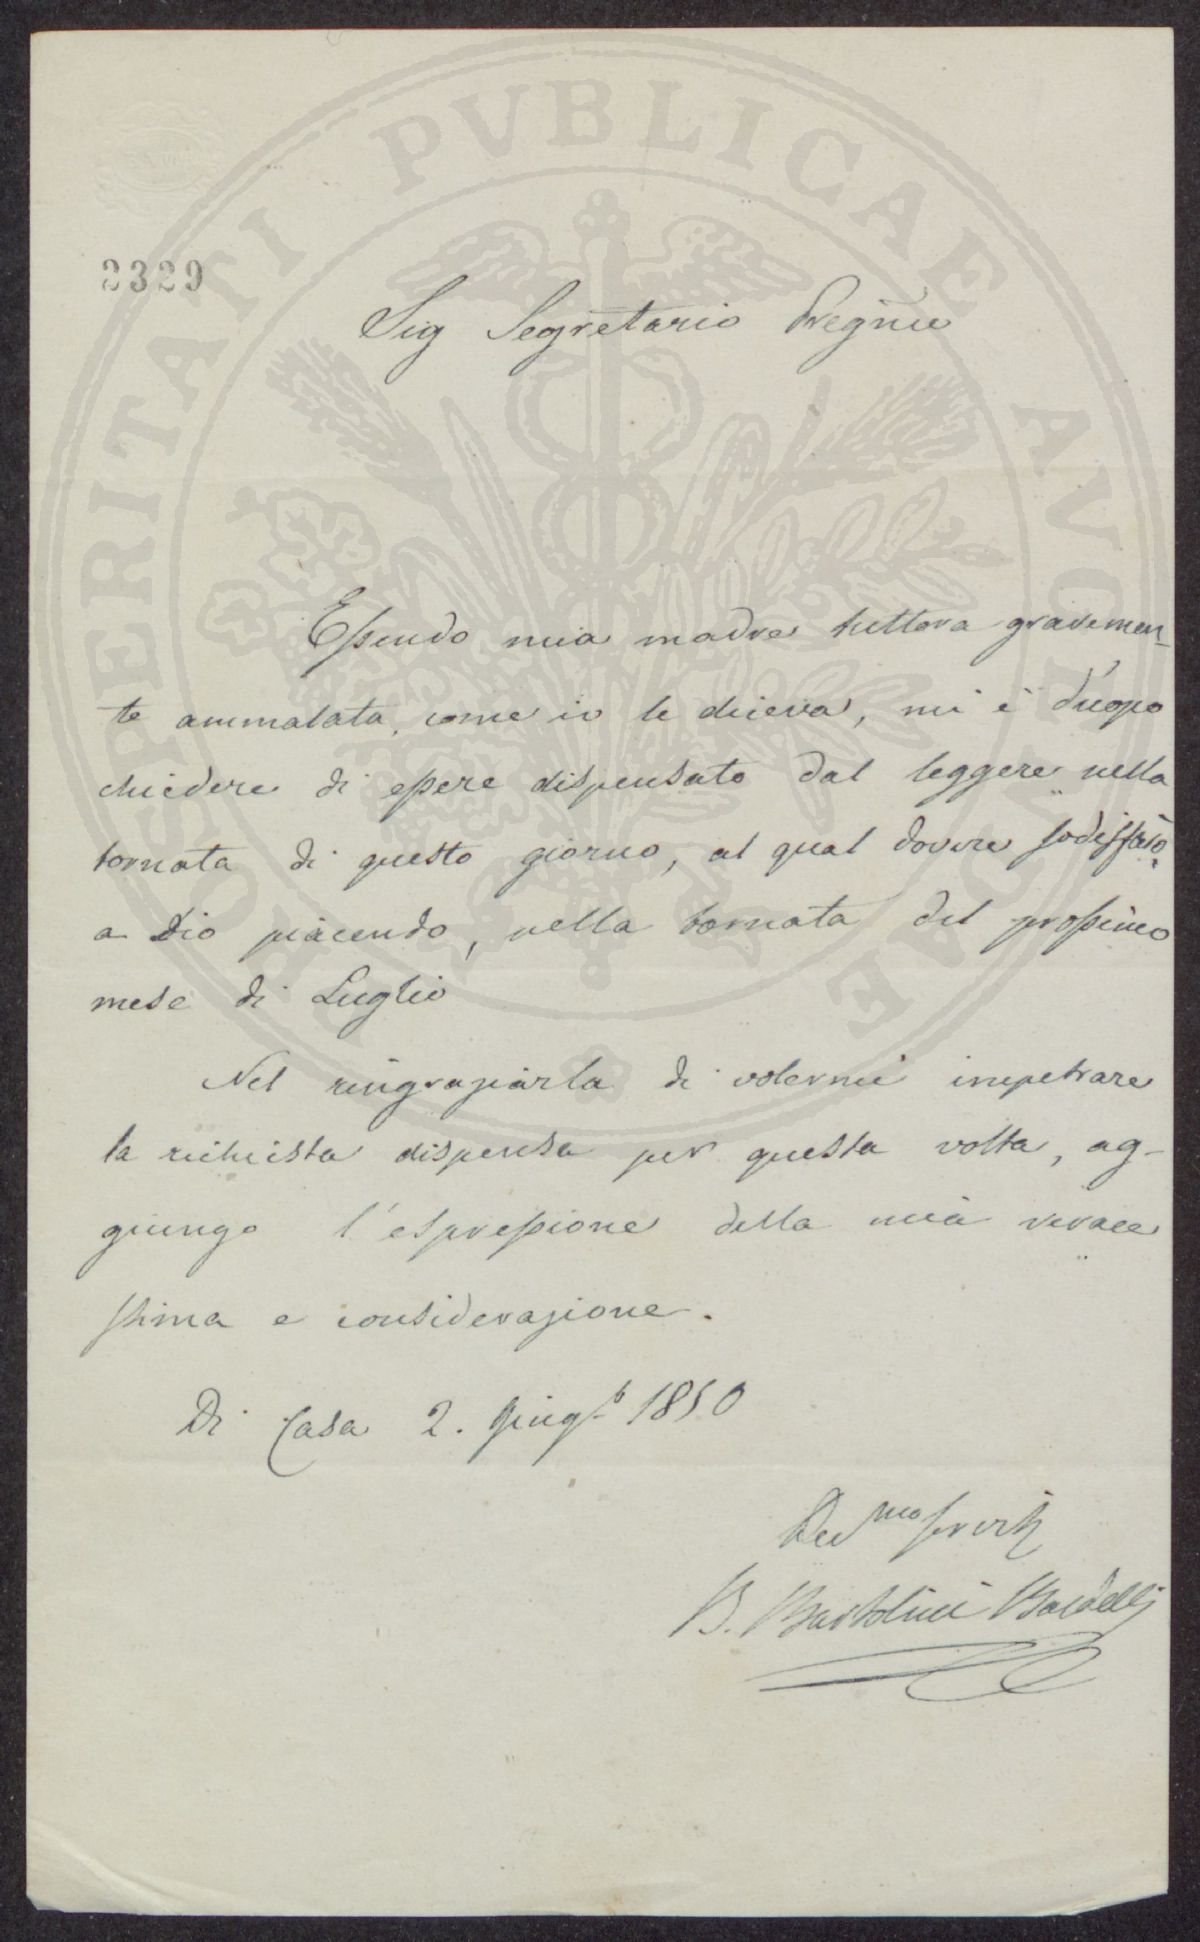 PROSPERITATI PVBLICAE AVGENDAE
2329
Sig Segretario Pregmo
Essendo mia madre tuttora gravemen-
te ammalata, come io le diceva, mi è d'uopo
chiedere di essere dispensato dal leggere nella
tornata di questo giorno, al qual dovere sodisfarò
a Dio piacendo, nella tornata del prossimo
mese di Luglio
Nel ringraziarla di volermi impetrare
la richiesta dispensa per questa volta, ag-
giungo l'espressione della mia verace
stima e considerazione.
Di Casa 2. Giugo 1850
Devmo servitr
B. Bartolini Baldelli